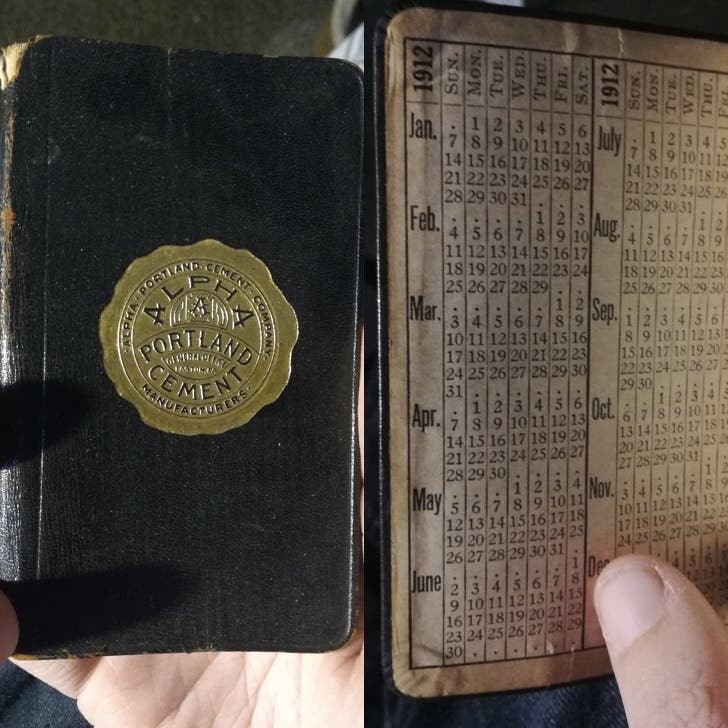 ALPHA · PORTLAND · CEMENT · COMPANY
ALPHA
A
PORTLAND
GENERAL OFFICE
EASTON, PA.
CEMENT
MANUFACTURERS
1912 SUN. MON. TUE. WED. THU. FRI. SAT.
Jan. . 1 2 3 4 5 6
7 8 9 10 11 12 13
14 15 16 17 18 19 20
21 22 23 24 25 26 27
28 29 30 31 . . .
Feb. . . . . 1 2 3
4 5 6 7 8 9 10
11 12 13 14 15 16 17
18 19 20 21 22 23 24
25 26 27 28 29 . .
Mar. . . . . . 1 2
3 4 5 6 7 8 9
10 11 12 13 14 15 16
17 18 19 20 21 22 23
24 25 26 27 28 29 30
31 . . . . . .
Apr. . 1 2 3 4 5 6
7 8 9 10 11 12 13
14 15 16 17 18 19 20
21 22 23 24 25 26 27
28 29 30 . . . .
May . . . 1 2 3 4
5 6 7 8 9 10 11
12 13 14 15 16 17 18
19 20 21 22 23 24 25
26 27 28 29 30 31 .
June . . . . . . 1
2 3 4 5 6 7 8
9 10 11 12 13 14 15
16 17 18 19 20 21 22
23 24 25 26 27 28 29
30 . . . . . .
1912 SUN. MON. TUE. WED. THU.
July . 1 2 3 4 5
7 8 9 10 11
14 15 16 17 18 19
21 22 23 24 25
28 29 30 31
Aug.
4 5 6 7 8 9
11 12 13 14 15
18 19 20 21 22
25 26 27 28 29 30
Sep. 1 2 3 4 5 6
8 9 10 11 12
15 16 17 18 19
22 23 24 25 26
29 30
Oct. . . 1 2 3 4
6 7 8 9 10 11
13 14 15 16 17
20 21 22 23 24
27 28 29 30 31
Nov.
3 4 5 6 7 8
10 11 12 13 14
17 18 19 20 21
24 25 26 27 28